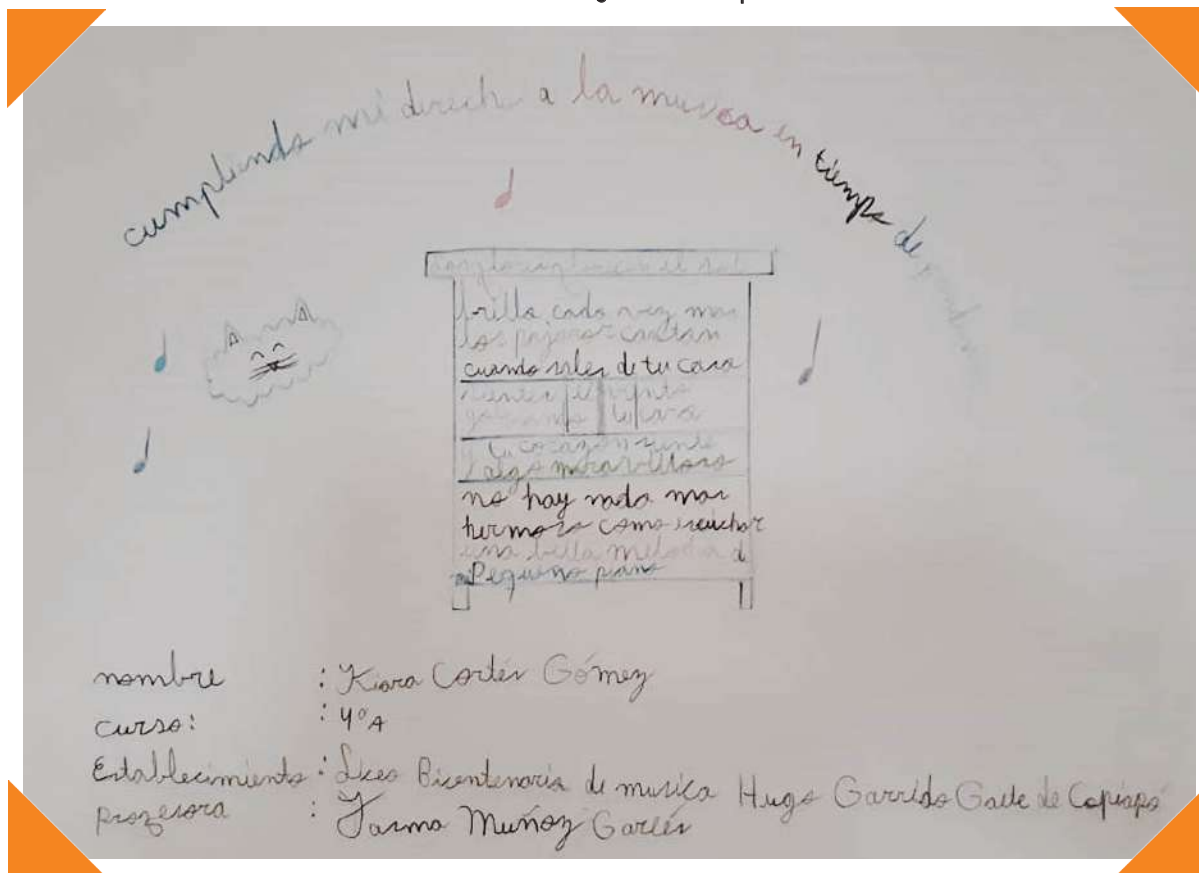 cumpliendo mi derecho a la musica en tiempo de
el sol
brilla cada vez mas
los pajaros cantan
cuando sales de tu casa
sientes el viento
y tu corazon siente
algo maravilloso
no hay nada mas
hermoso como escuchar
una bella melodia d
mi Pequeño piano
nombre : Kiara Cortés Gómez
curso: : 4°A
Establecimiento : Liceo Bicentenario de musica Hugo Garrido Gaete de Copiapó
profesora : Muñoz